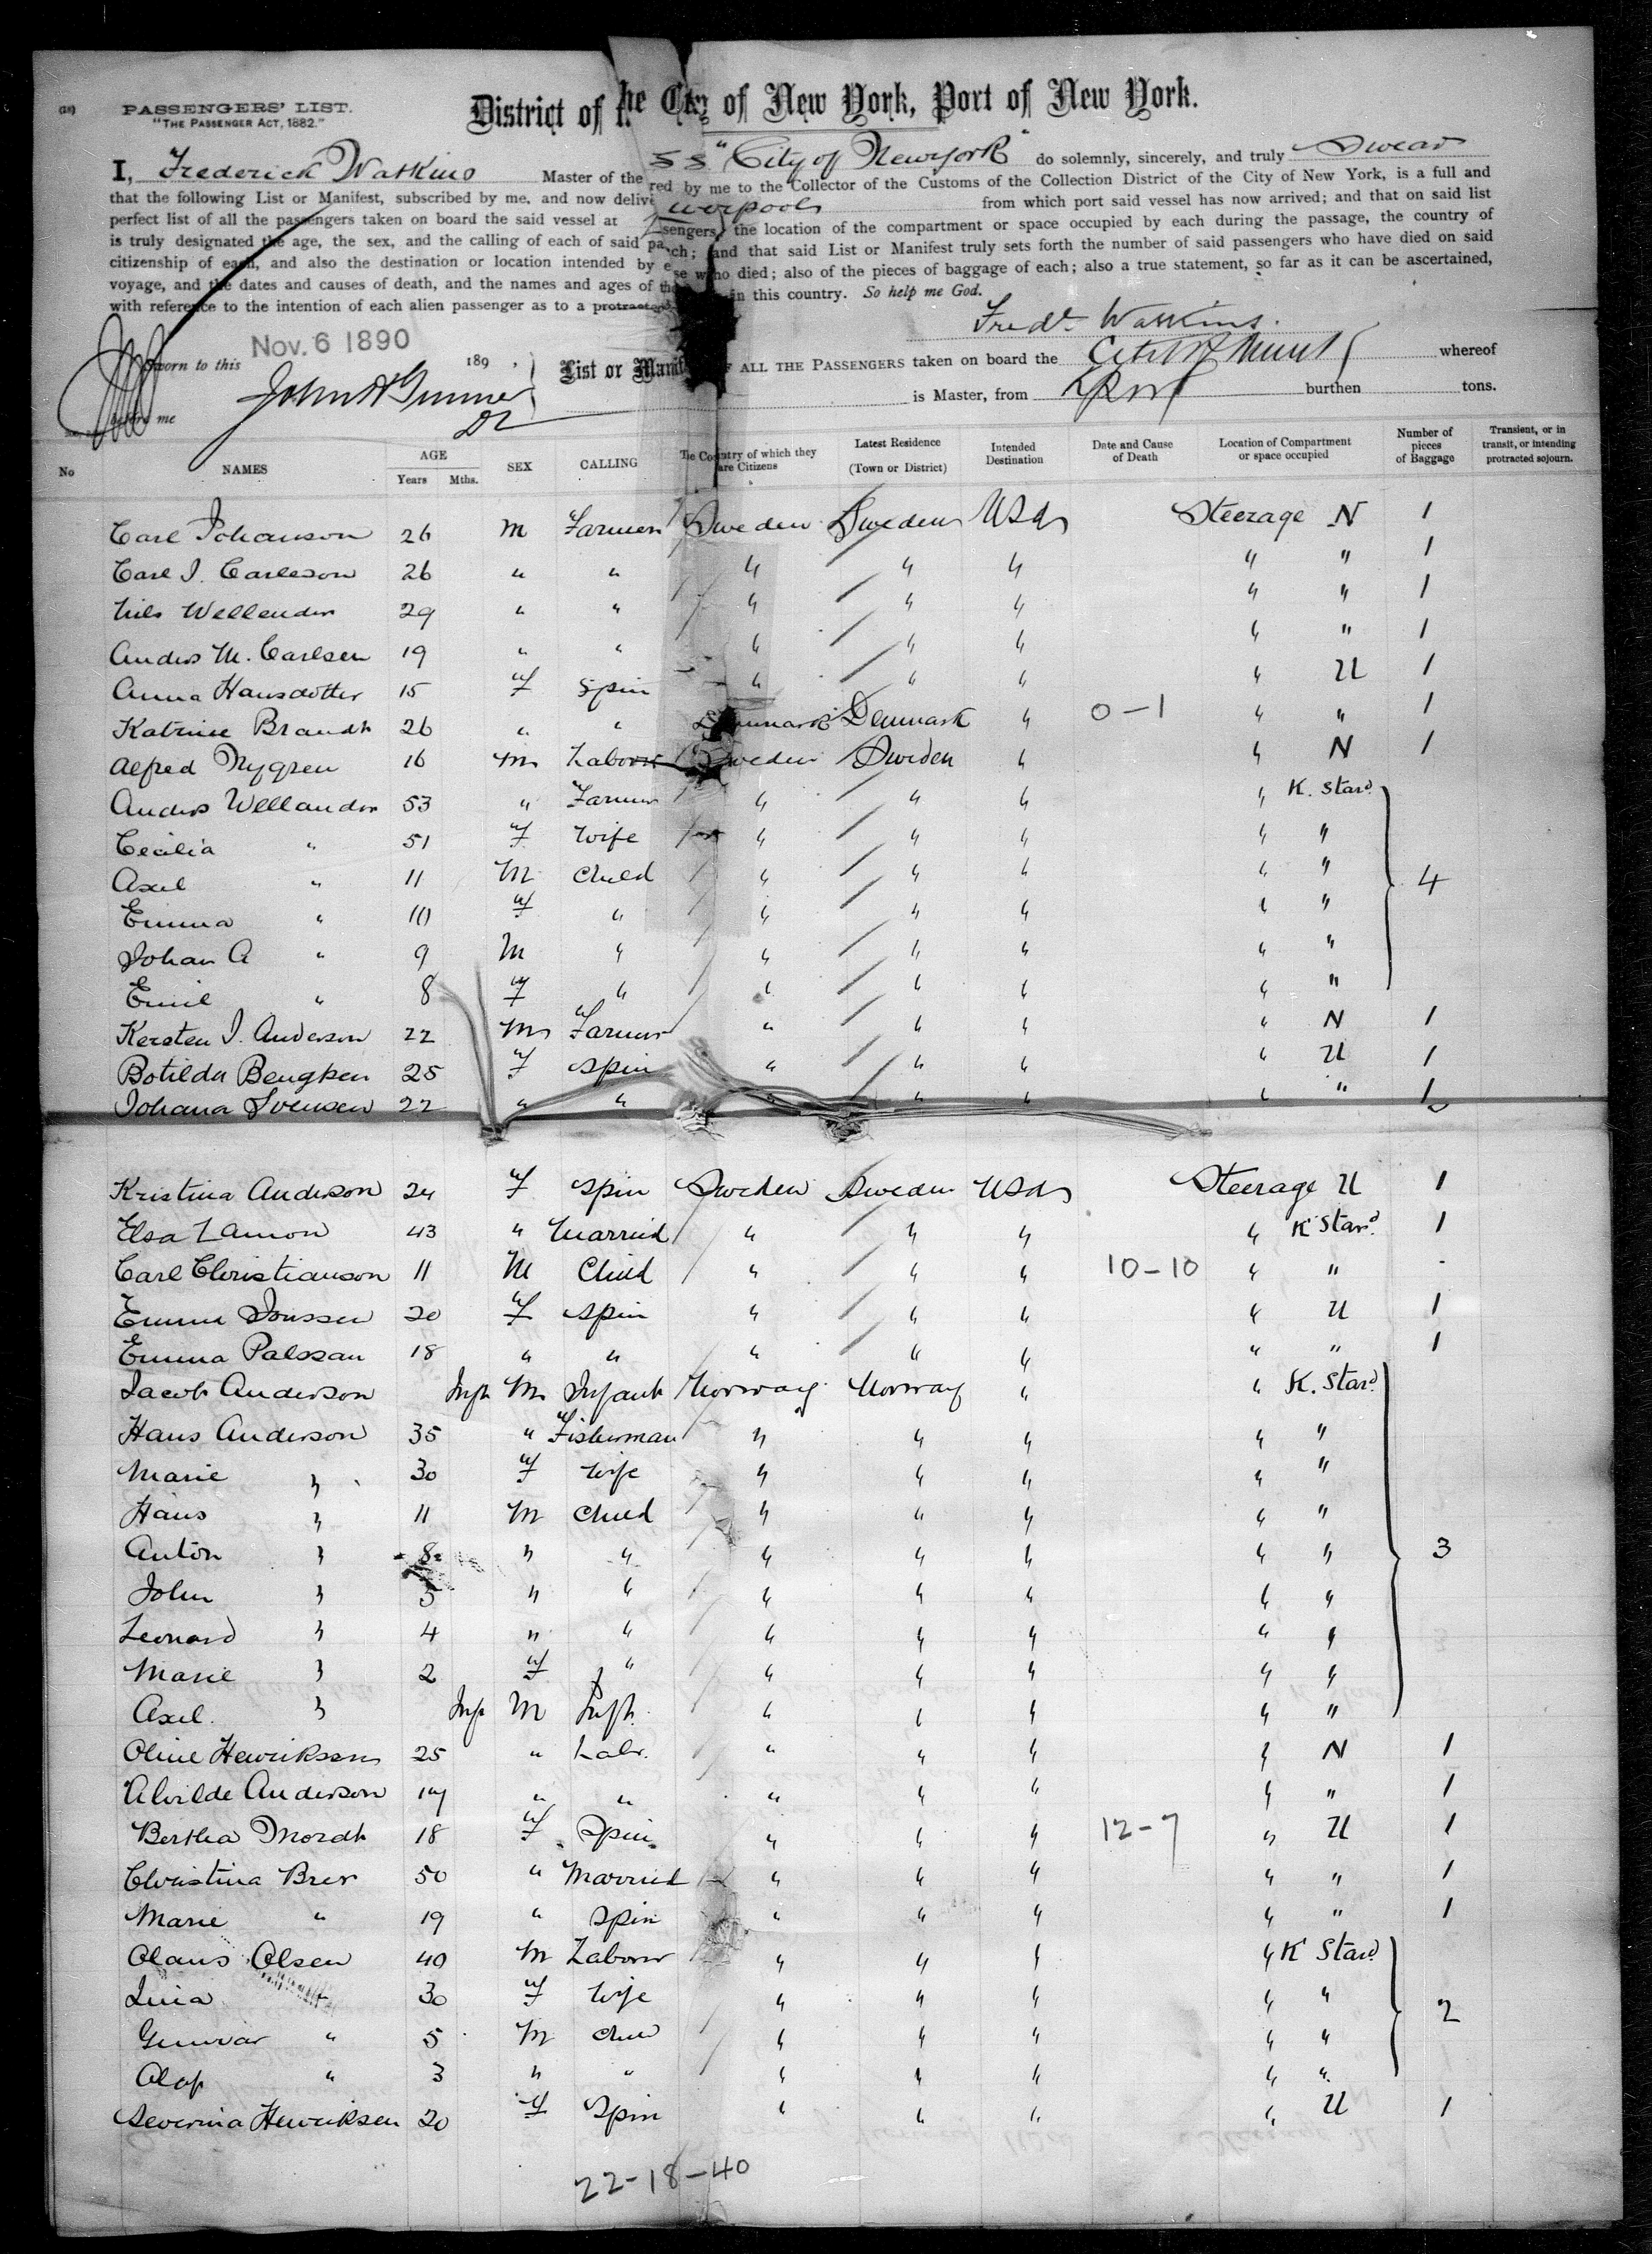 (18)
PASSENGERS' LIST.
"THE PASSENGER ACT, 1882."
District of the City of New York, Port of New York.
I, Frederick Watkins Master of the SS "City of New York" do solemnly, sincerely, and truly Swear
that the following List or Manifest, subscribed by me, and now delivered by me to the Collector of the Customs of the Collection District of the City of New York, is a full and
perfect list of all the passengers taken on board the said vessel at Liverpool from which port said vessel has now arrived; and that on said list
is truly designated the age, the sex, and the calling of each of said passengers, the location of the compartment or space occupied by each during the passage, the country of
citizenship of each, and also the destination or location intended by each; and that said List or Manifest truly sets forth the number of said passengers who have died on said
voyage, and the dates and causes of death, and the names and ages of those who died; also of the pieces of baggage of each; also a true statement, so far as it can be ascertained,
with reference to the intention of each alien passenger as to a protracted in this country. So help me God.
Fredk Watkins.
Sworn to this Nov. 6 1890 189 ,
before me
List or Manifest OF ALL THE PASSENGERS taken on board the City of New York whereof
is Master, from LPool burthen tons.
No NAMES AGE Years Mths. SEX CALLING The Country of which they are Citizens Latest Residence (Town or District) Intended Destination Date and Cause of Death Location of Compartment or space occupied Number of pieces of Baggage Transient, or in transit, or intending protracted sojourn.
Carl Johanson 26 M Farmer Sweden Sweden USA Steerage N 1
Carl J. Carleson 26 " " " " " " " 1
Nils Wellander 29 " " " " " " " 1
Anders M. Carlsen 19 " " " " " " " 1
Anna Hansdotter 15 F Spin " " " " U 1
Katrine Brandt 26 " " Denmark Denmark " 0-1 " " 1
Alfred Nygren 16 M Labour Sweden Sweden " " N 1
Anders Wellander 53 " Farmer " " " " K. Stard.
Cecilia " 51 F Wife " " " " "
Axel " 11 M Child " " " " " 4
Emma " 10 F " " " " " "
Johan A " 9 M " " " " " "
Emil " 8 F " " " " " "
Kersten J. Anderson 22 M Farmer " " " " N 1
Botilda Bengtsen 25 F Spin " " " " U 1
Johana Svensen 22 " " " " " " " 1
Kristina Anderson 24 F Spin Sweden Sweden USA Steerage U 1
Elsa Lamon 43 " Married " " " " K Stard. 1
Carl Christianson 11 M Child " " " 10-10 " "
Emma Jonssen 20 F Spin " " " " U 1
Emma Palssan 18 " " " " " " " 1
Jacob Anderson Inft M Infant Norway Norway " " K. Stard.
Hans Anderson 35 " Fisherman " " " " "
Marie " 30 F Wife " " " " "
Hans " 11 M Child " " " " "
Anton " 8 " " " " " " " 3
John " 5 " " " " " " "
Leonard " 4 " " " " " " "
Marie " 2 F " " " " " "
Axel. " Inft M Inft. " " " " "
Oline Henriksen 25 " Labr. " " " " N 1
Alvilde Anderson 19 " " " " " " " 1
Bertha Mordt 18 F Spin " " " 12-7 " U 1
Christina Brer 50 " Married " " " " " 1
Marie " 19 " Spin " " " " " 1
Olaus Olsen 40 M Labour " " " " K Stard
Lina " 30 F Wife " " " " " 2
Gunvar " 5 M Child " " " " "
Olaf " 3 " " " " " " "
Severina Henriksen 20 F Spin " " " " U 1
22-18-40